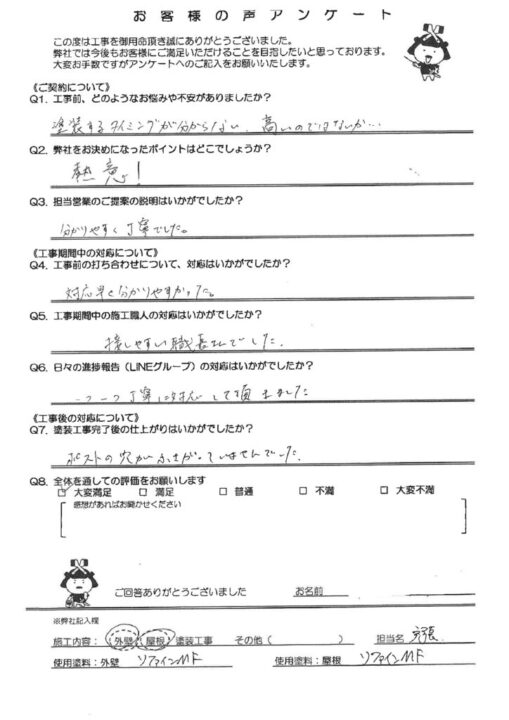 お客様の声アンケート
この度は工事を御用命頂き誠にありがとうございました。
弊社では今後もお客様にご満足いただけることを目指したいと思っております。
大変お手数ですがアンケートへのご記入をお願いいたします。
《ご契約について》
Q1. 工事前、どのようなお悩みや不安がありましたか?
塗装するタイミングが分からない、高いのではないか…
Q2. 弊社をお決めになったポイントはどこでしょうか?
熱意!
Q3. 担当営業のご提案の説明はいかがでしたか?
分かりやすく丁寧でした。
《工事期間中の対応について》
Q4. 工事前の打ち合わせについて、対応はいかがでしたか?
対応早く分かりやすかった。
Q5. 工事期間中の施工職人の対応はいかがでしたか?
接しやすい職長さんでした.
Q6. 日々の進捗報告(LINEグループ)の対応はいかがでしたか?
一つ一つ丁寧に対応して頂きました
《工事後の対応について》
Q7. 塗装工事完了後の仕上がりはいかがでしたか?
ポストの穴がふさがっていませんでした.
Q8. 全体を通しての評価をお願いします
□ 大変満足 □ 満足 □ 普通 □ 不満 □ 大変不満
感想があればお聞かせください
ご回答ありがとうございました お名前
※弊社記入欄
施工内容:外壁・屋根 塗装工事 その他( ) 担当名
使用塗料:外壁 リファインMF 使用塗料:屋根 リファインMF